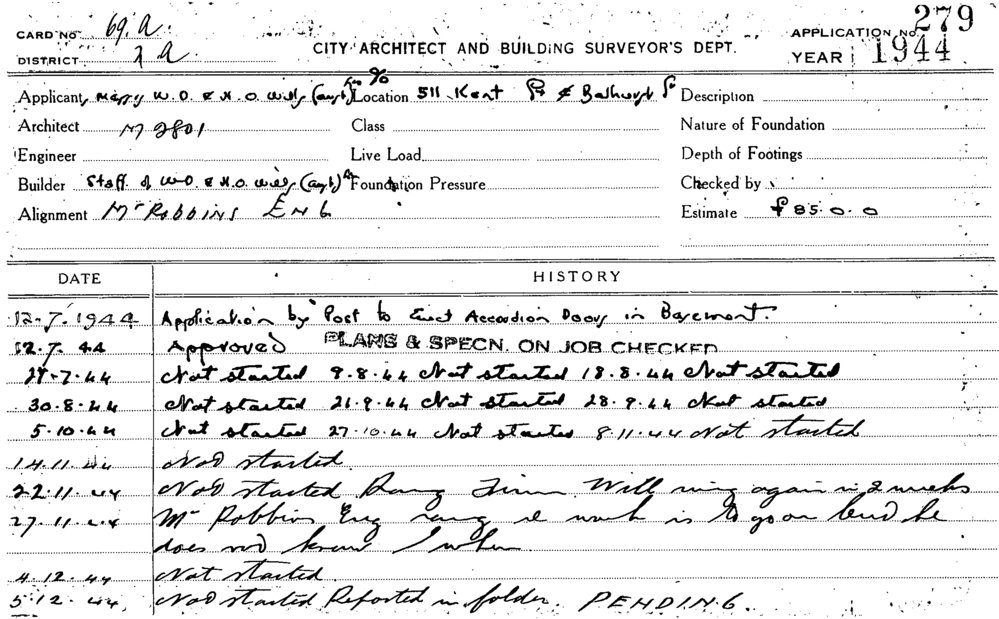 CARD NO 69.a.
279
DISTRICT a
CITY ARCHITECT AND BUILDING SURVEYOR'S DEPT.
APPLICATION NO.
YEAR 1944
Applicant W.O. & H.O. Wills (aust) Location 511 Kent St & Bathurst St Description
Architect M 2801 Class Nature of Foundation
Engineer Live Load Depth of Footings
Builder Staff of W.O. & H.O. Wills (aust) Foundation Pressure Checked by
Alignment Mr Robbins ENG Estimate £85.0.0
DATE HISTORY
12.7.1944 Application by Post to Erect Accordion Doors in Basement.
12.7.44 Approved PLANS & SPECN. ON JOB CHECKED
27.7.44 Not started 9.8.44 Not started 18.8.44 Not started
30.8.44 Not started 21.9.44 Not started 28.9.44 Not started
5.10.44 Not started 27.10.44 Not started 8.11.44 Not started
14.11.44 Not started.
22.11.44 Not started Rang Firm. Will ring again in 2 weeks
27.11.44 Mr Robbins Eng rang work is to go on but he
does not know when.
4.12.44 Not started.
5.12.44 Not started Reported in folder. PENDING.